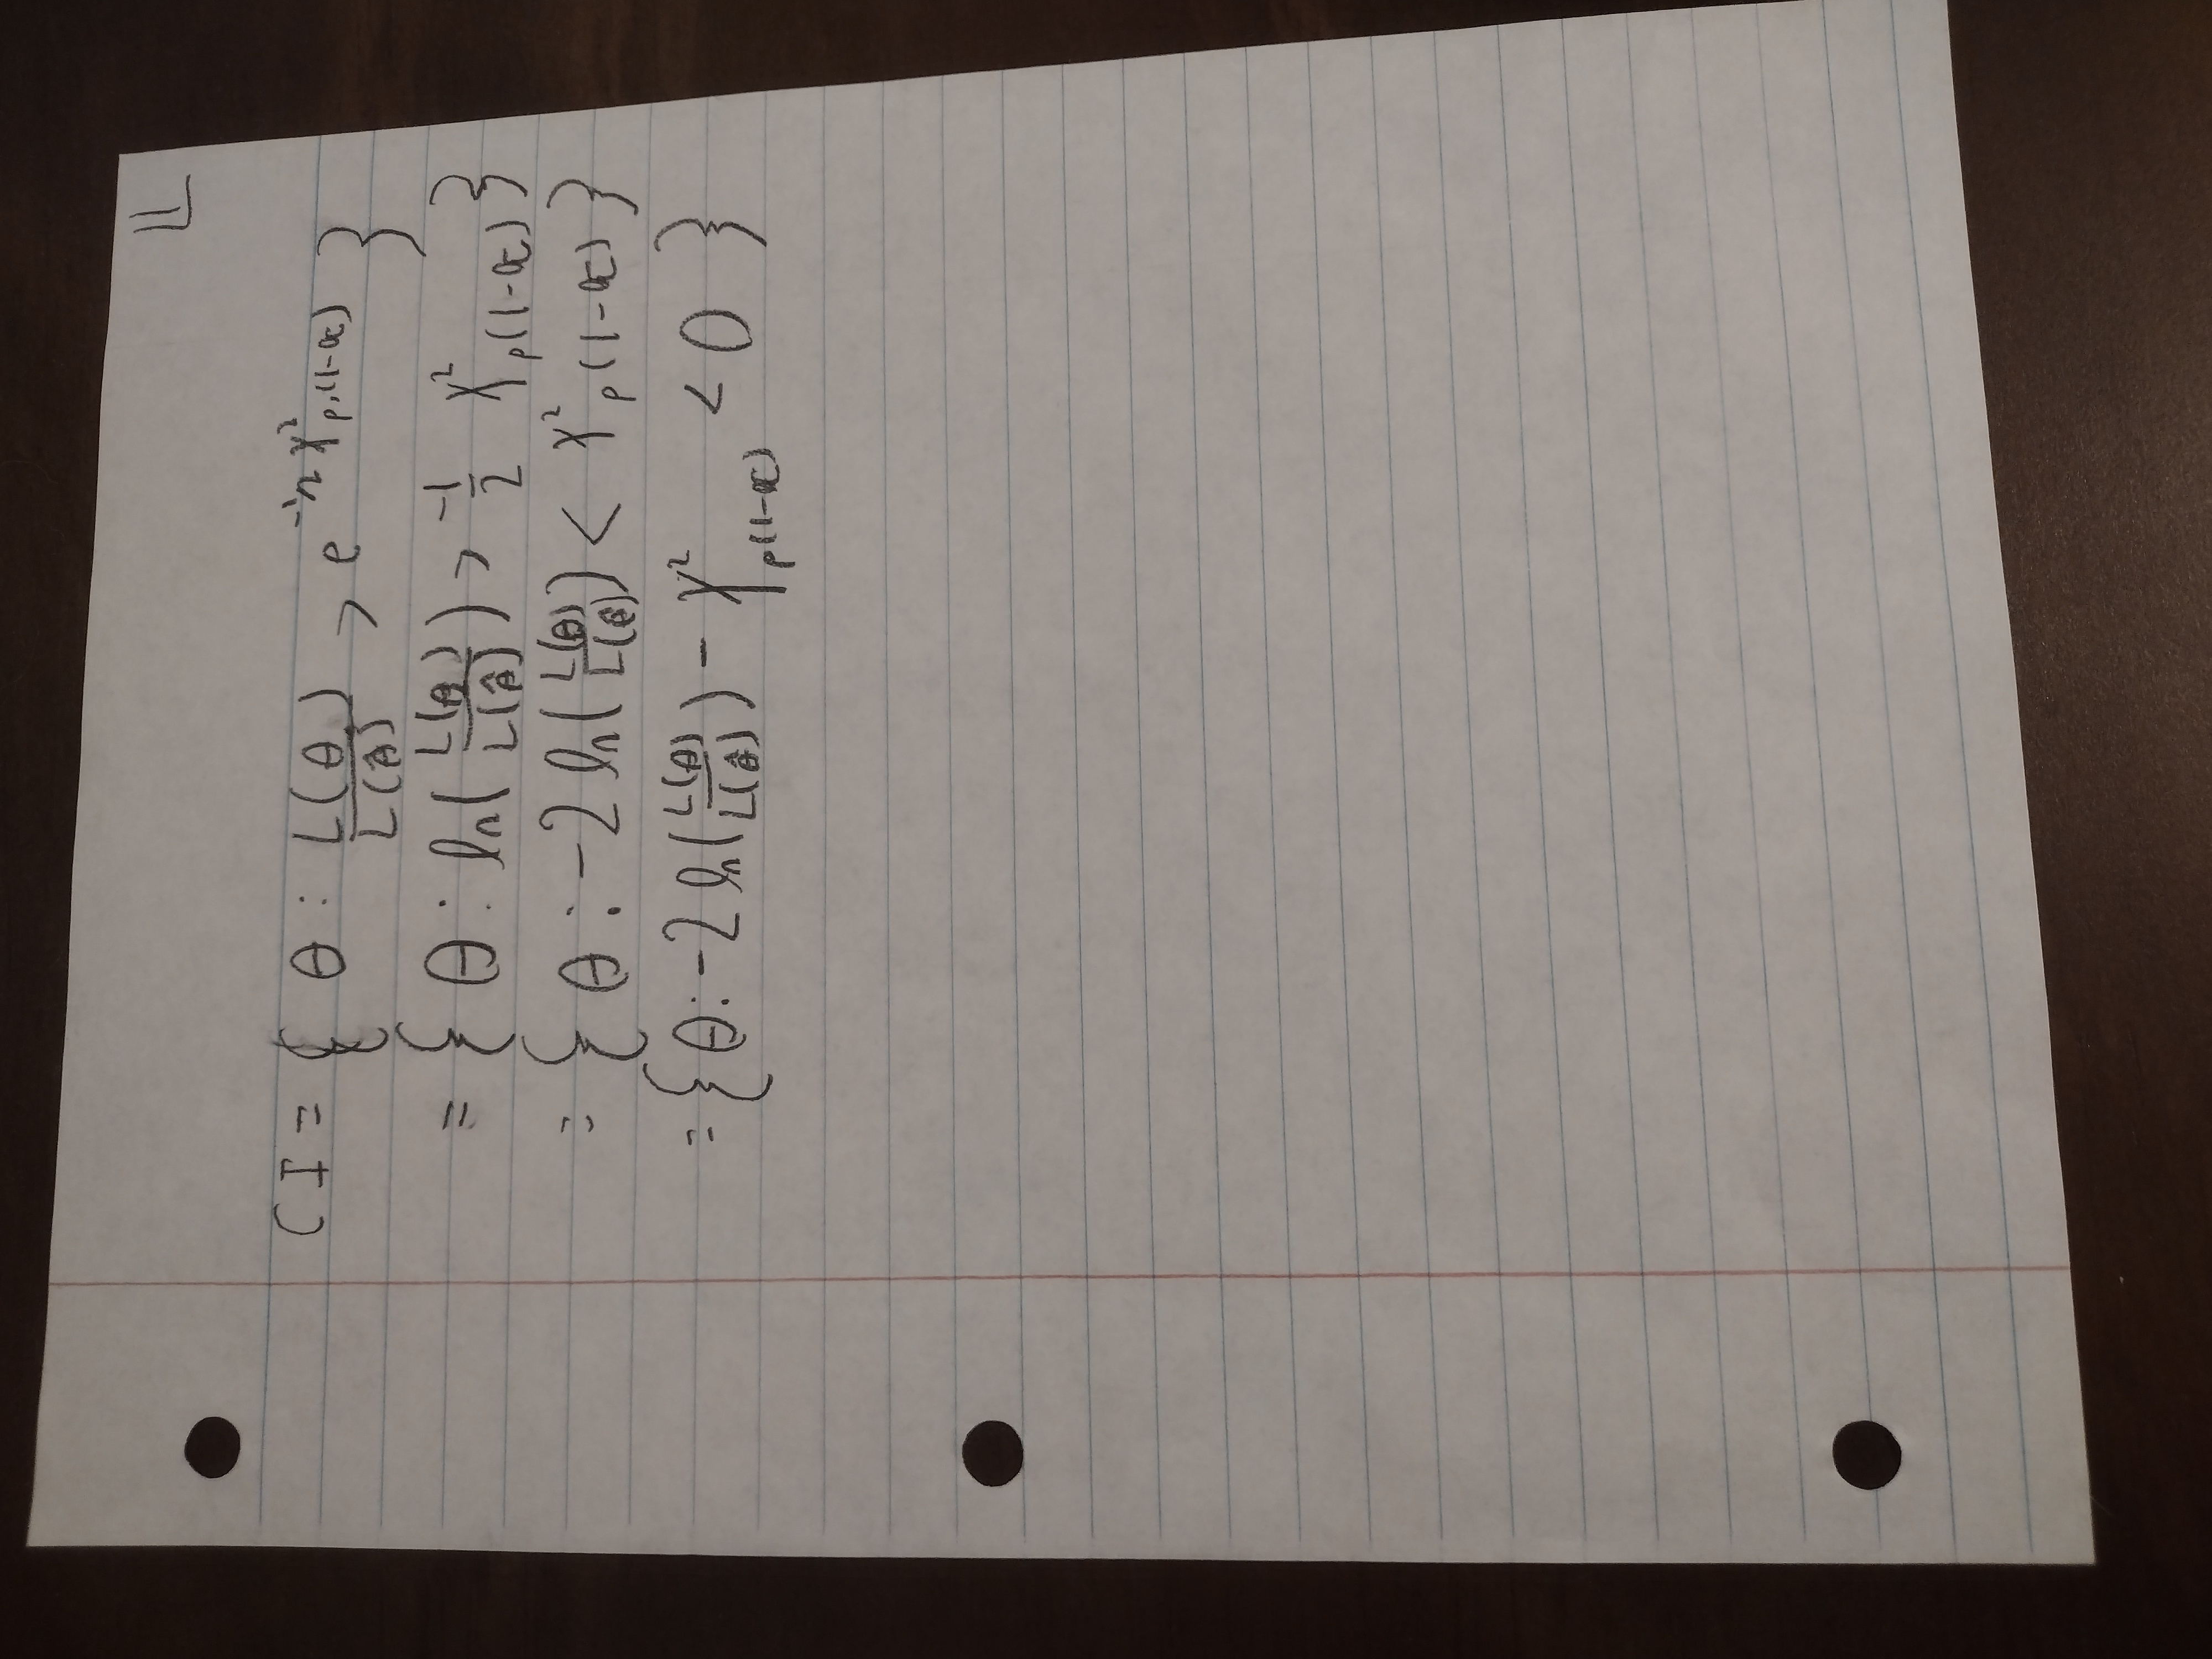 1
CI = { θ : L(θ) / L(θ̂) > e^(-1/2 χ²_p,(1-α)) }
= { θ : ln( L(θ) / L(θ̂) ) > -1/2 χ²_p(1-α) }
= { θ : -2 ln( L(θ) / L(θ̂) ) < χ²_p(1-α) }
= { θ : -2 ln( L(θ) / L(θ̂) ) - χ²_p(1-α) < 0 }